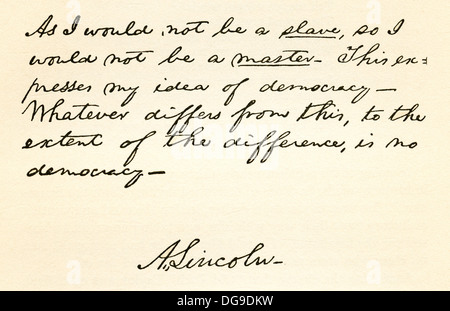 As I would not be a slave, so I
would not be a master— This ex=
presses my idea of democracy—
Whatever differs from this, to the
extent of the difference, is no
democracy—
A. Lincoln—
alamy
Image ID: DG9DKW
www.alamy.com